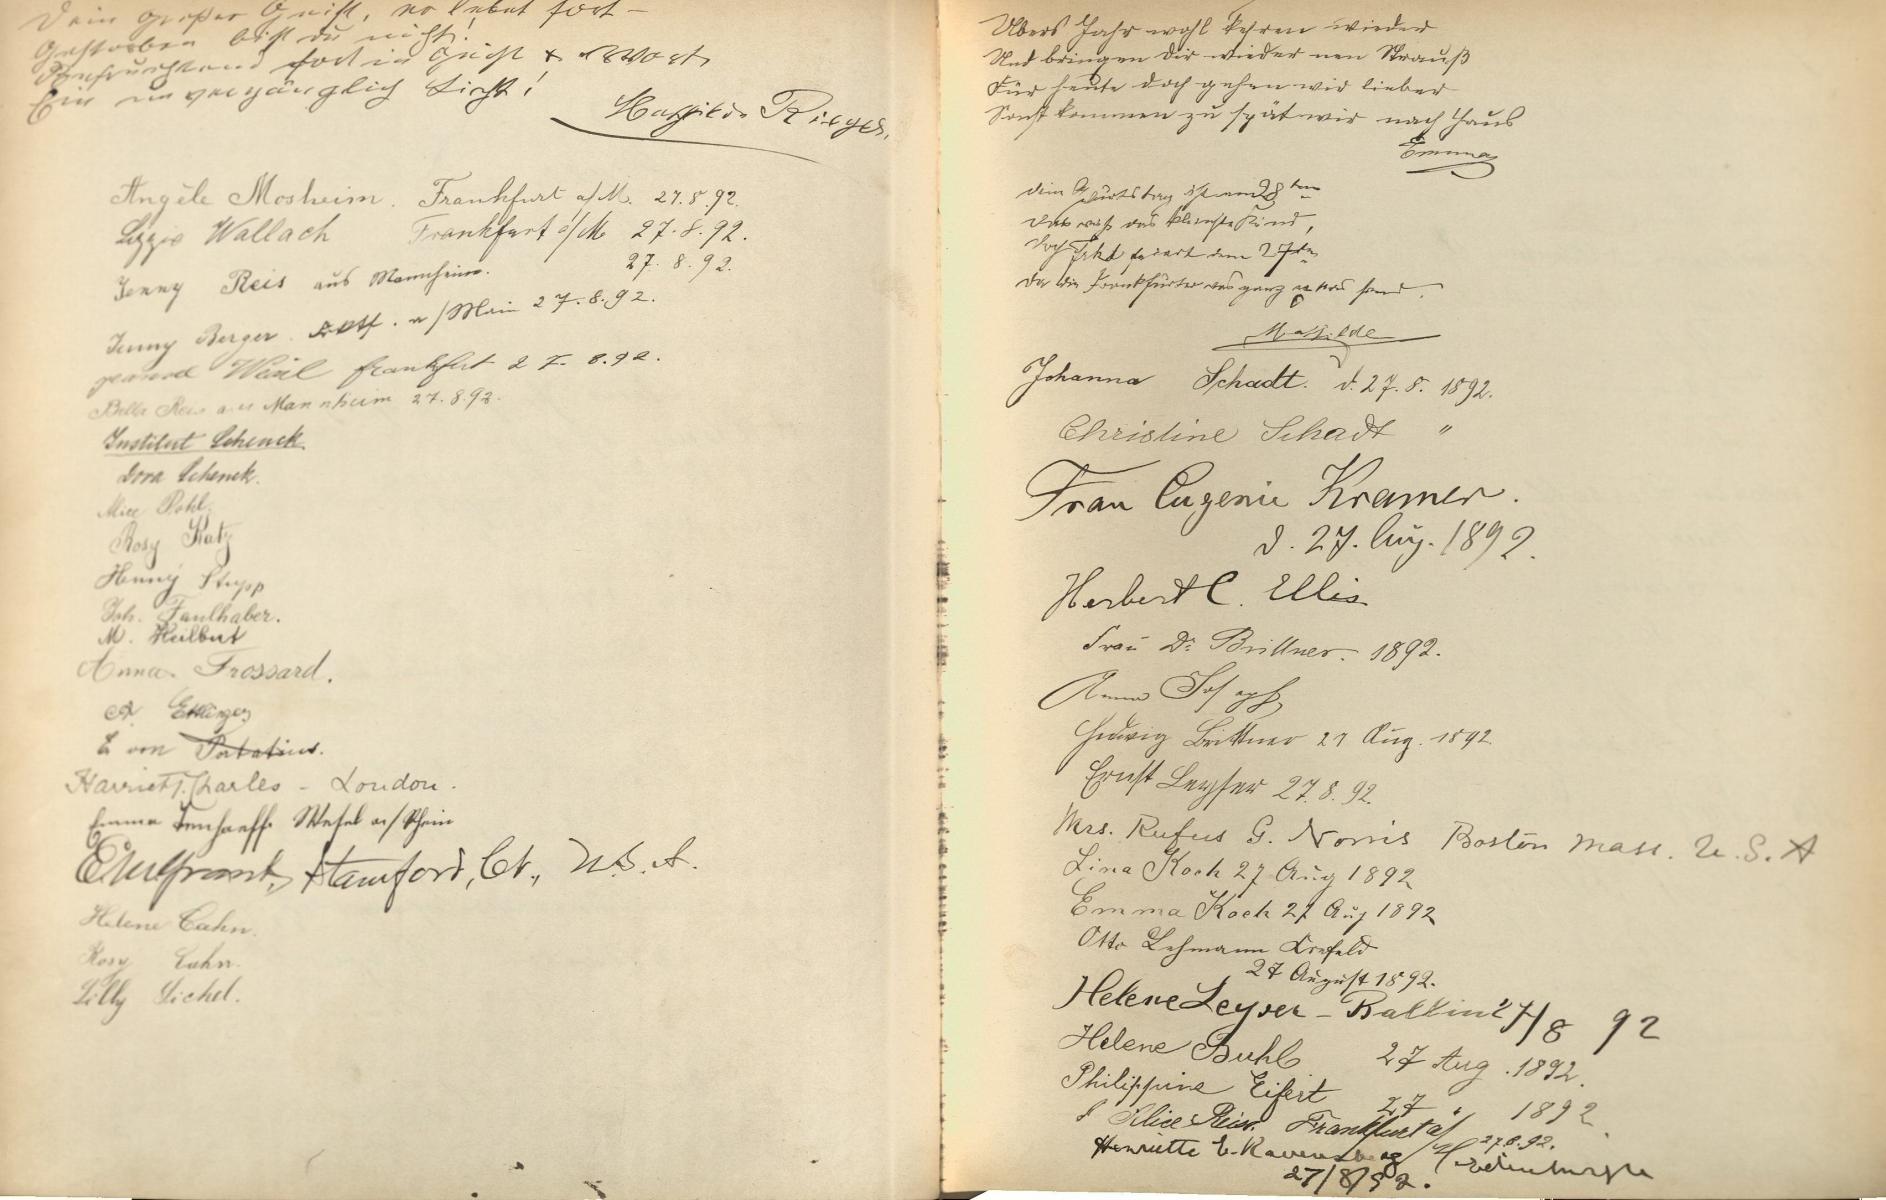 Dein großer Geist, er lebet fort –
Gestorben bist du nicht!
fort in Geist & Wort
Ein unvergänglich Licht!
Mathilde Rieger.
Angèle Mosheim. Frankfurt a/M. 27.8.92.
Lizzie Wallach Frankfurt a/M 27.8.92.
Jenny Reis aus Mannheim. 27.8.92.
Jenny Berger a/Main 27.8.92.
Weil Frankfurt 27.8.92.
Bella Reis aus Mannheim 27.8.92.
Institut Schenck
Dora Schenck.
Alice Pohl.
Rosy Katz
Henny Stupp
Joh. Faulhaber.
M. Hulbert
Anna Frossard.
A. Ettlinger
E von
Harriet J. Charles – London.
Emma Wesel a/Rhein
Stamford, Ct., U.S.A.
Helene Cahn.
Rosy Cahn.
Lilly Sichel.
Übers Jahr wohl kehren wieder
Und bringen dir wieder nen Strauß
Für heute doch gehen wir lieber
Sonst kommen zu spät wir nach Haus
Emma
Dein Geburtstag ist am 28ten
Das weiß das kleinste Kind,
Doch Fest feiert den 27ten
Da die Frankfurter was ganz sind.
Mathilde
Johanna Schadt. d. 27.8. 1892.
Christine Schadt "
Frau Eugenie Kramer.
d. 27. Aug. 1892.
Herbert C. Ellis
Frau Dr Brittner. 1892.
Anna Joseph
Hedwig Brittner 27 Aug. 1892
Ernst Leyser 27.8.92.
Mrs. Rufus G. Norris Boston Mass. U.S.A
Lina Koch 27 Aug 1892
Emma Koch 27 Aug 1892
Otto Lehmann Krefeld
27 August 1892.
Helene Leyser – Balkin 27/8 92
Helene Buhl 27 Aug. 1892.
Philippine Eifert 27 " 1892.
Alice Reis. Frankfurt a/M 27.8.92.
Henriette E. Ravensberg
27/8/92.